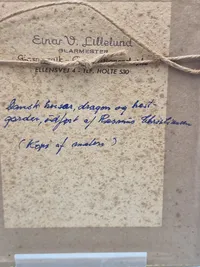 Ejnar V. Lillelund
GLARMESTER
ELLENSVEJ 4 - TLF. HOLTE 530
Dansk husar, dragon og hest-
garder, udført af Rasmus Christiansen
(Kopi af maleri)